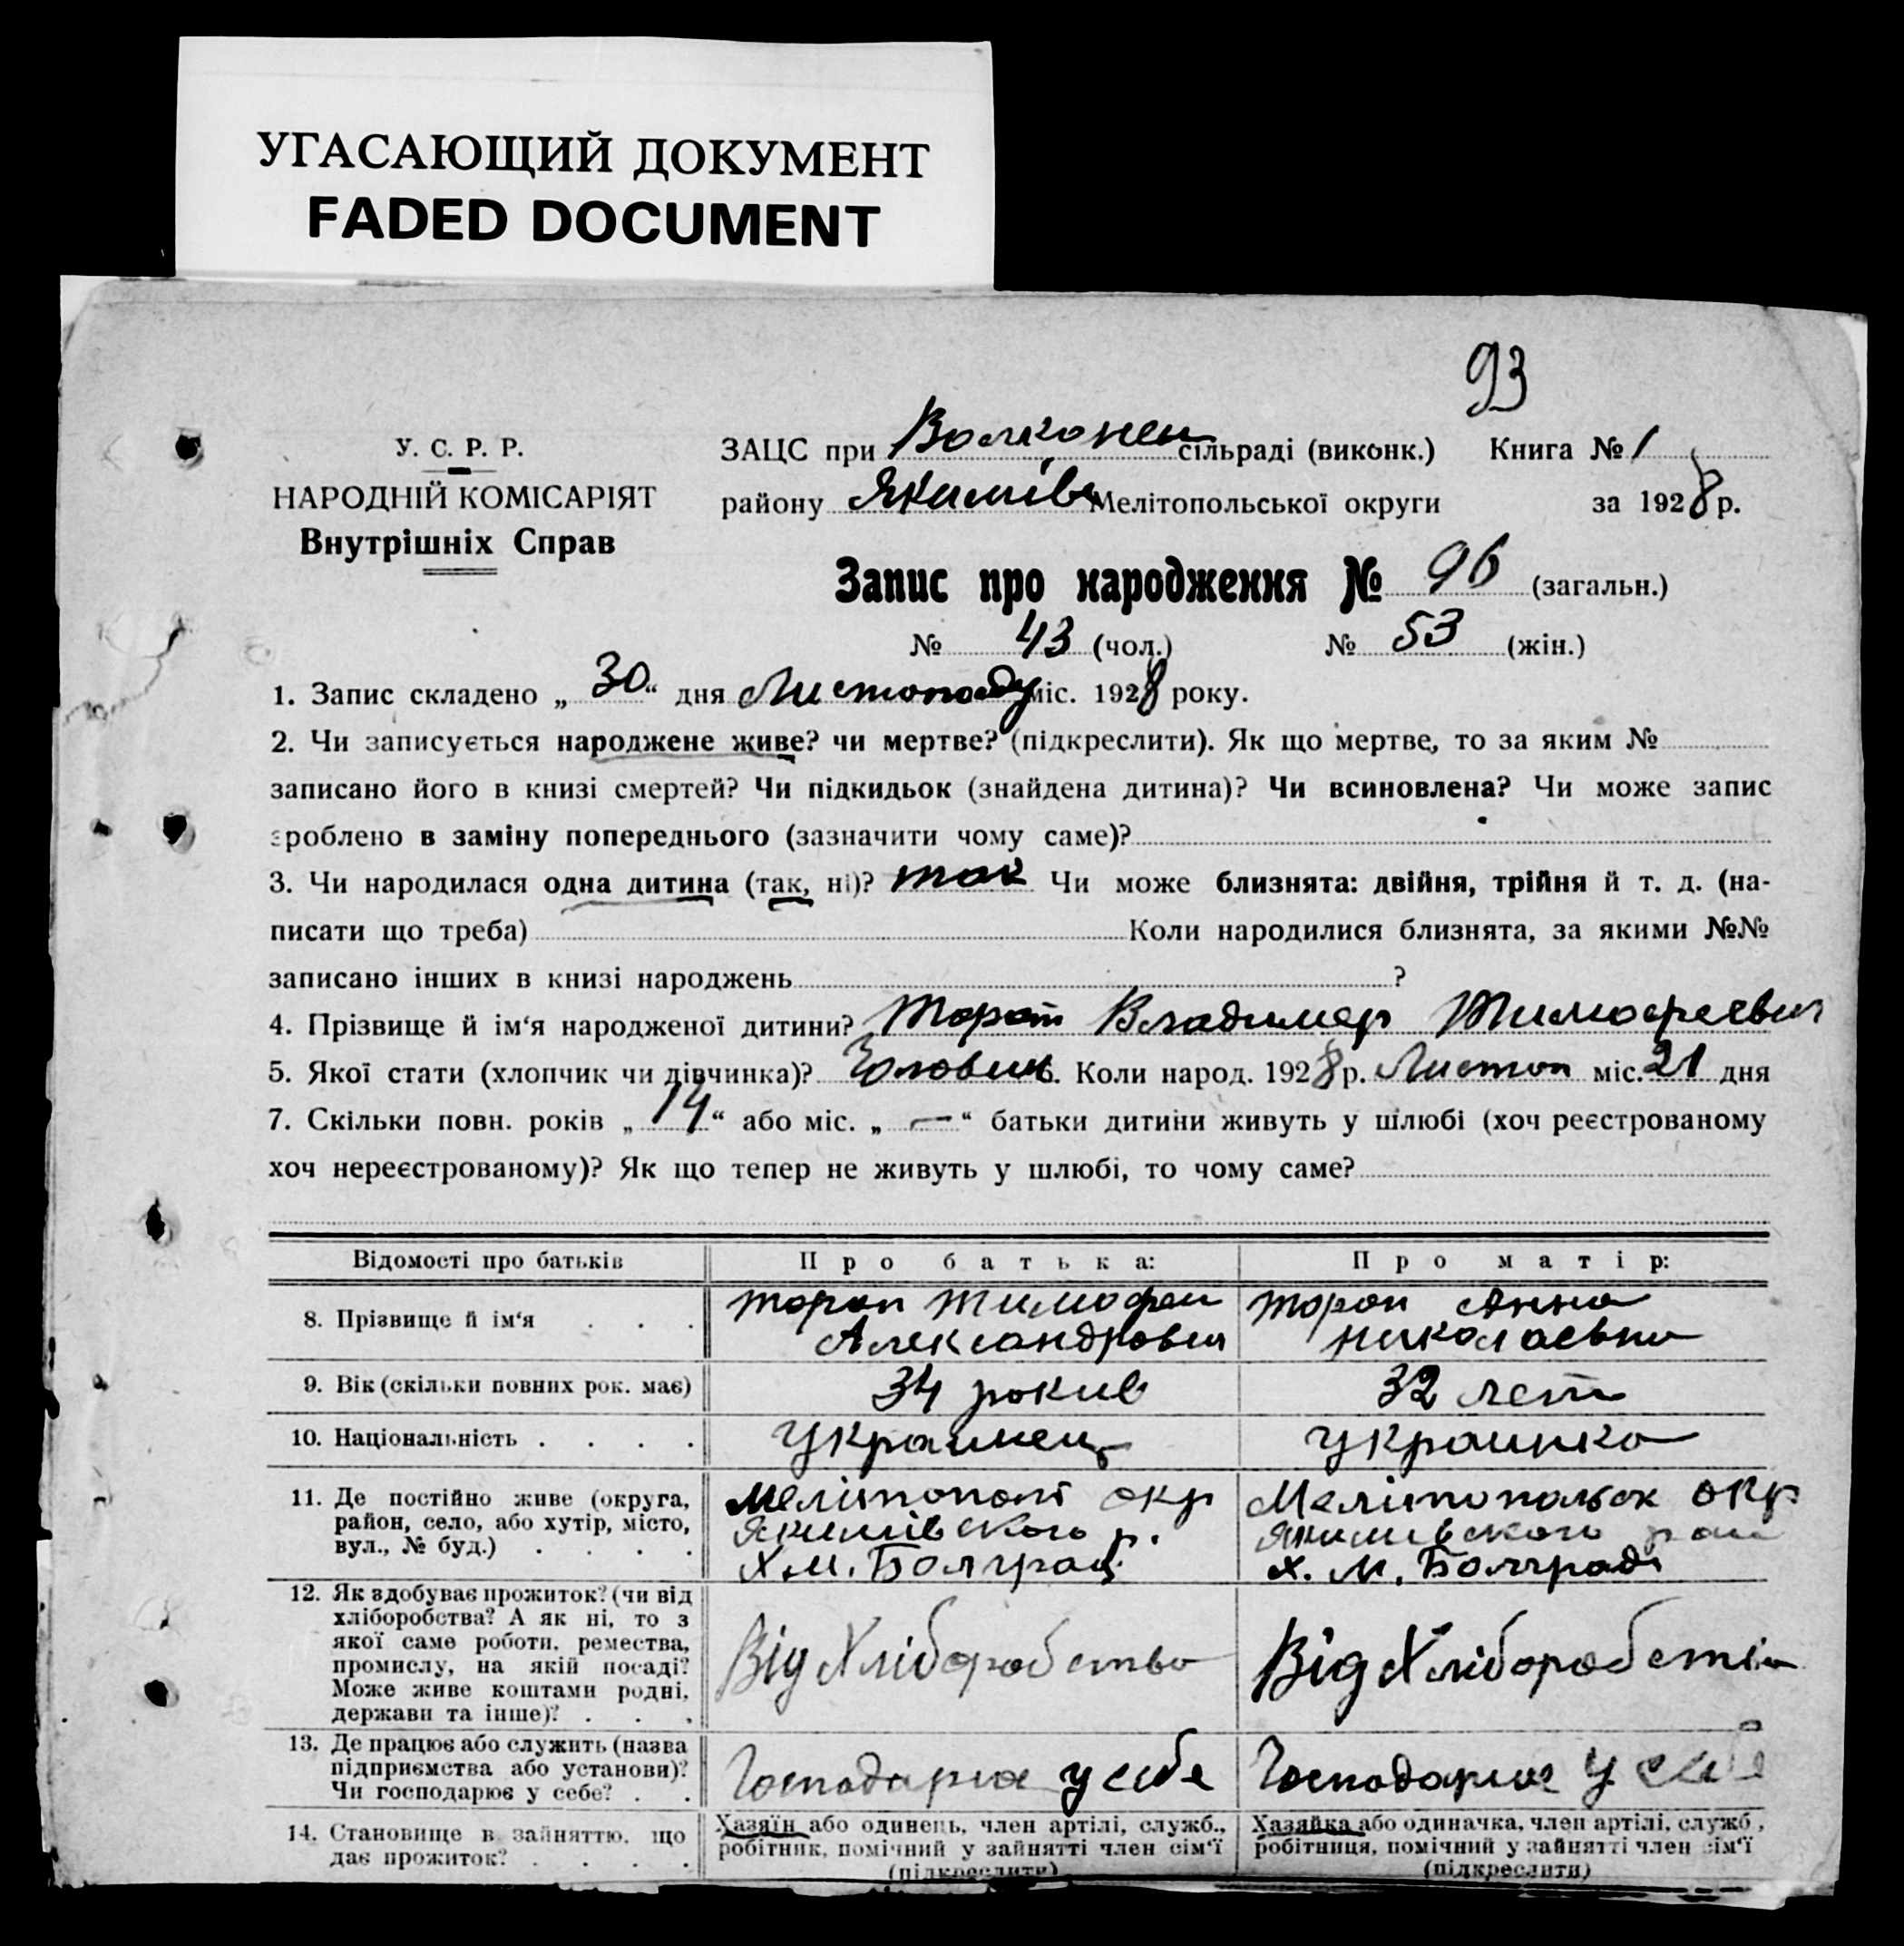 УГАСАЮЩИЙ ДОКУМЕНТ
FADED DOCUMENT
93
У. С. Р. Р.
НАРОДНІЙ КОМІСАРІЯТ
Внутрішніх Справ
ЗАЦС при Волконен сільраді (виконк.) Книга № 1
району Якимів Мелітопольської округи за 1928 р.
Запис про народження № 96 (загальн.)
№ 43 (чол.) № 53 (жін.)
1. Запис складено „ 30 “ дня Листопаду міс. 1928 року.
2. Чи записується народжене живе? чи мертве? (підкреслити). Як що мертве, то за яким №
записано його в книзі смертей? Чи підкидьок (знайдена дитина)? Чи всиновлена? Чи може запис
зроблено в заміну попереднього (зазначити чому саме)?
3. Чи народилася одна дитина (так, ні)? так Чи може близнята: двійня, трійня й т. д. (на-
писати що треба) Коли народилися близнята, за якими №№
записано інших в книзі народжень ?
4. Прізвище й ім‘я народженої дитини? Торап Владимер Тимофеевич
5. Якої стати (хлопчик чи дівчинка)? Чолович 6. Коли народ. 1928 р. Листоп міс. 21 дня
7. Скільки повн. років „ 14 “ або міс. „ — “ батьки дитини живуть у шлюбі (хоч реєстрованому
хоч нереєстрованому)? Як що тепер не живуть у шлюбі, то чому саме?
Відомості про батьків Про батька: Про матір:
8. Прізвище й ім‘я . . . Торап Тимофеи Торап Анна
Александрович Николаевна
9. Вік (скільки повних рок. має) 34 рокив 32 лет
10. Національність . . . . Украинец Украинка
11. Де постійно живе (округа, район, село, або хутір, місто, вул., № буд.) . . . .
Мелітополі окр Мелітопольск окр
Якимівского р. Якимивского раи
Х.М. Болград Х. М. Болграді
12. Як здобуває прожиток? (чи від хліборобства? А як ні, то з якої саме роботи, ремества, промислу, на якій посаді? Може живе коштами родні, держави та інше)? . . .
Від Хліборобства Від Хліборобства
13. Де працює або служить (назва підприємства або установи)? Чи господарює у себе? . .
Господарює у себе Господарює у себе
14. Становище в зайняттю, що дає прожиток? . . . .
Хазяїн або одинець, член артілі, служб., робітник, помічний у зайнятті член сім‘ї (підкреслити)
Хазяйка або одиначка, член артілі, служб., робітниця, помічний у зайнятті член сім‘ї (підкреслити)